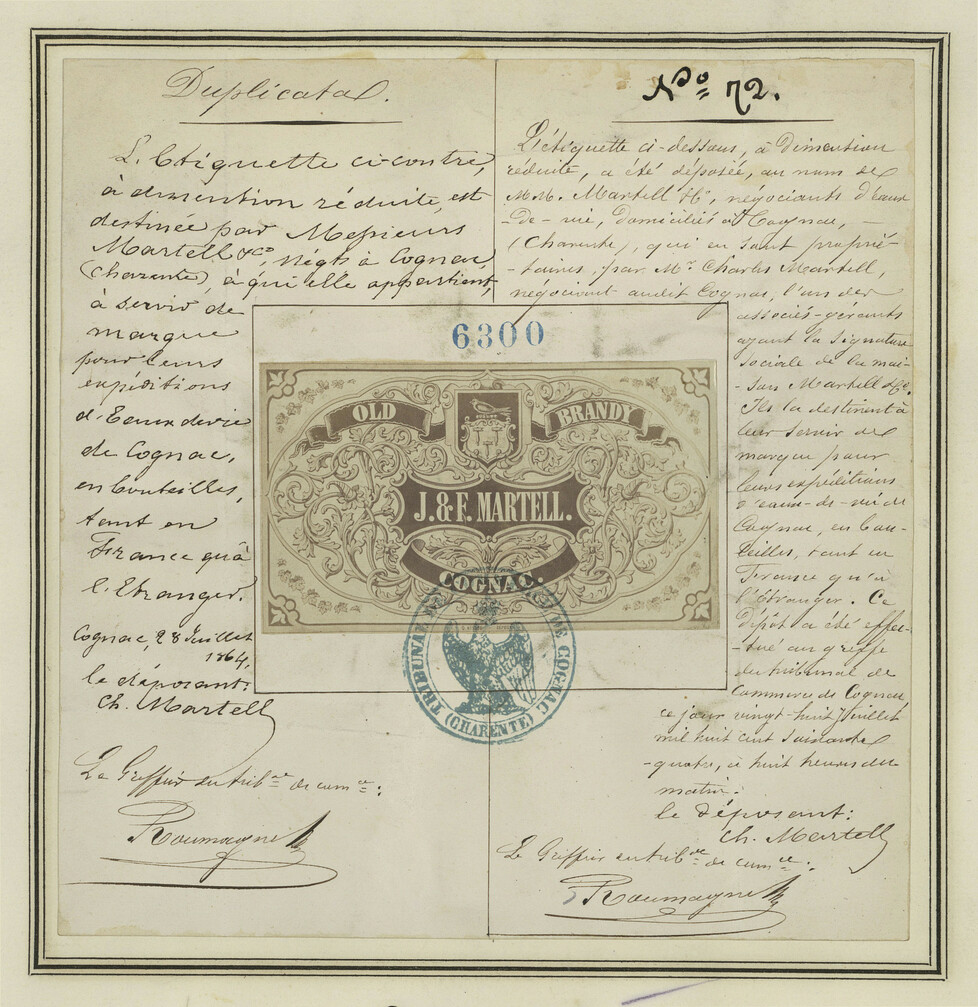 Duplicata.
L'Etiquette ci-contre,
à dimention réduite, est
destinée par Messieurs
Martell & Co, Négts à Cognac,
(Charente), à qui elle appartient,
à servir de
marque
pour leurs
expéditions
d'Eaux de vie
de Cognac,
en bouteilles,
tant en
France qu'à
l'Etranger.
Cognac, 28 Juillet
1864,
le déposant:
Ch. Martell
Le Greffier du tribal de comce:
Roumagne
No 72.
L'étiquette ci-dessous, à Dimention
réduite, a été déposée, au nom de
M.M. Martell & Co, négociants d'eaux
-De-vie, domiciliés à Cognac,
(Charente, qui en sont proprié-
-taires, par Mr Charles Martell,
négociant audit Cognac, l'un des
associés-gérants
ayant la signature
sociale de la mai-
-son Martell & Co.
Ils la destinent à
leur servir de
marque pour
leurs expéditions
d'eaux-de-vie de
Cognac, en bou-
teilles, tant en
France qu'à
l'étranger. Ce
Dépôt a été effec-
-tué au greffe
du tribunal de
Commerce de Cognac
ce jour vingt-huit Juillet
mil huit cent soixante
-quatre, à huit heures du
matin.
le déposant:
Ch. Martell
Le Greffier du tribal de comce:
Roumagne
6300
OLD BRANDY
J. & F. MARTELL.
COGNAC.
TRIBUNAL DE COGNAC
(CHARENTE)